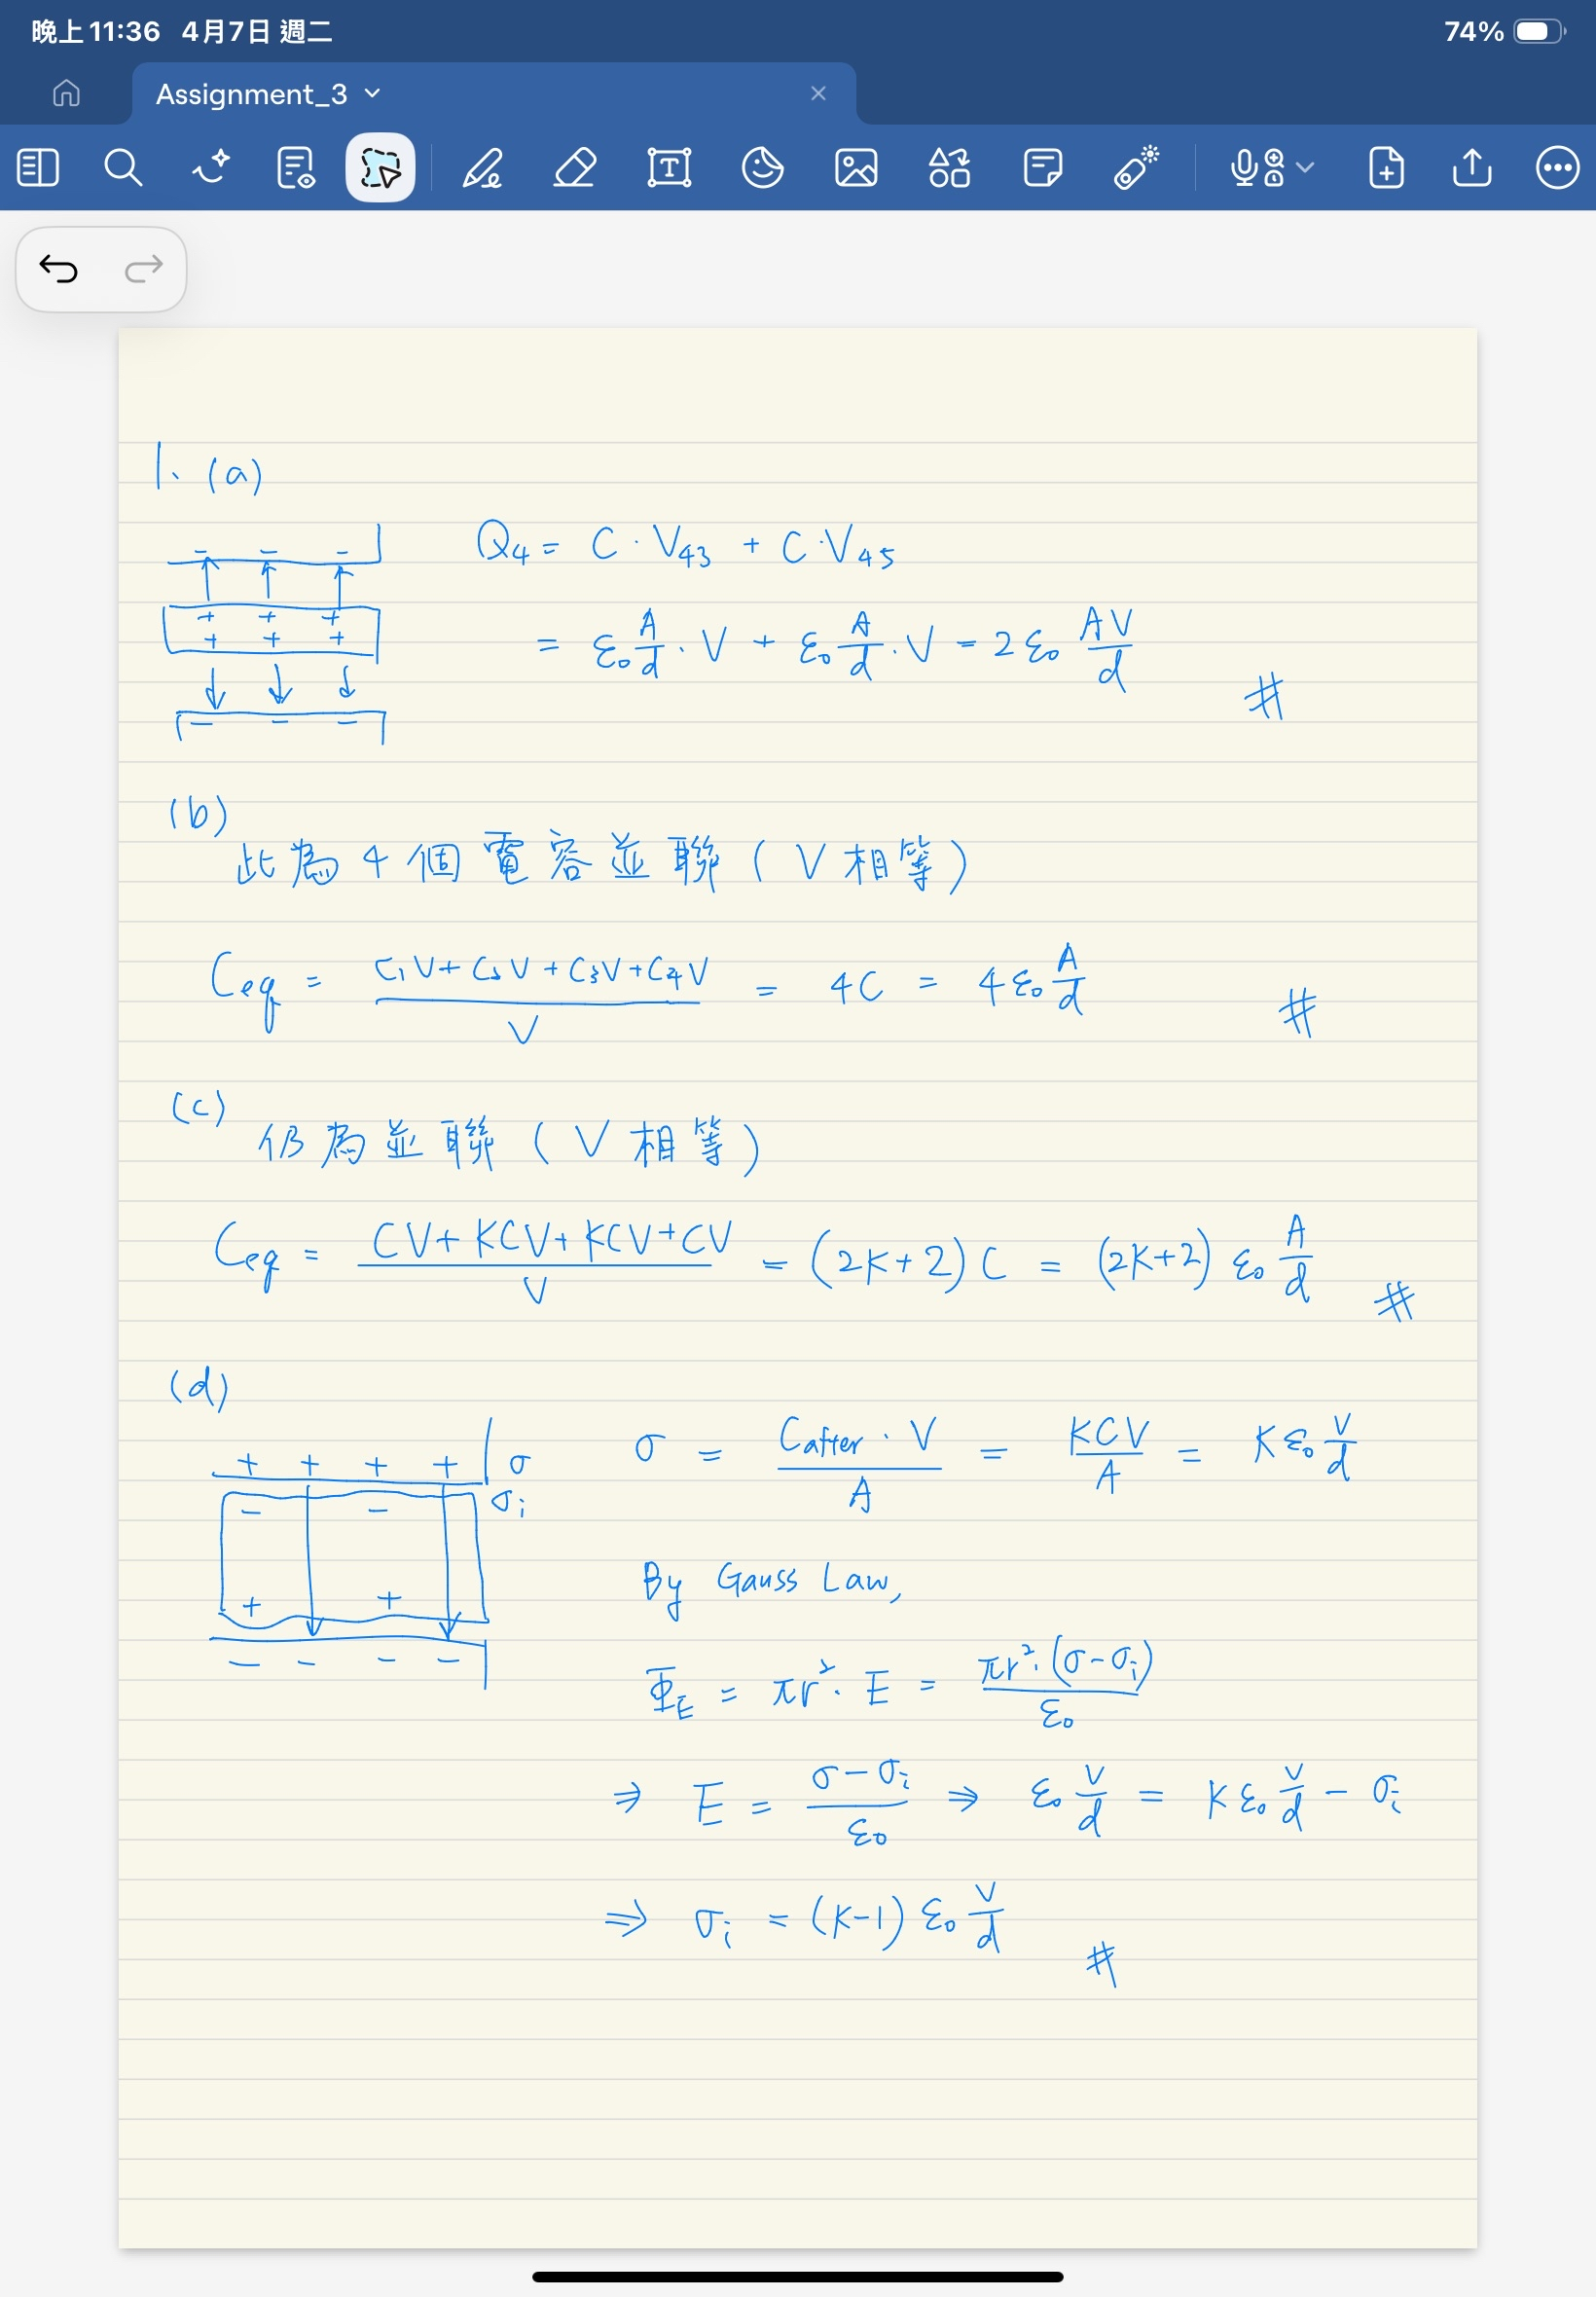 晚上 11:36 4月7日 週二 74%
Assignment_3
1、(a)
Q₄ = C · V₄₃ + C · V₄₅
= ε₀ A/d · V + ε₀ A/d · V = 2 ε₀ AV/d #
- - -
+ + +
+ + +
- - -
(b)
此為 4 個電容並聯 ( V 相等 )
Ceq = (C₁V + C₂V + C₃V + C₄V)/V = 4C = 4 ε₀ A/d #
(c)
仍為並聯 ( V 相等 )
Ceq = (CV + KCV + KCV + CV)/V = (2K+2) C = (2K+2) ε₀ A/d #
(d)
+ + + + σ
- - σi
+ +
- - - -
σ = (Cafter · V)/A = KCV/A = K ε₀ V/d
By Gauss Law,
ΦE = πr² · E = πr² · (σ - σi)/ε₀
⇒ E = (σ - σi)/ε₀ ⇒ ε₀ V/d = K ε₀ V/d - σi
⇒ σi = (K-1) ε₀ V/d #